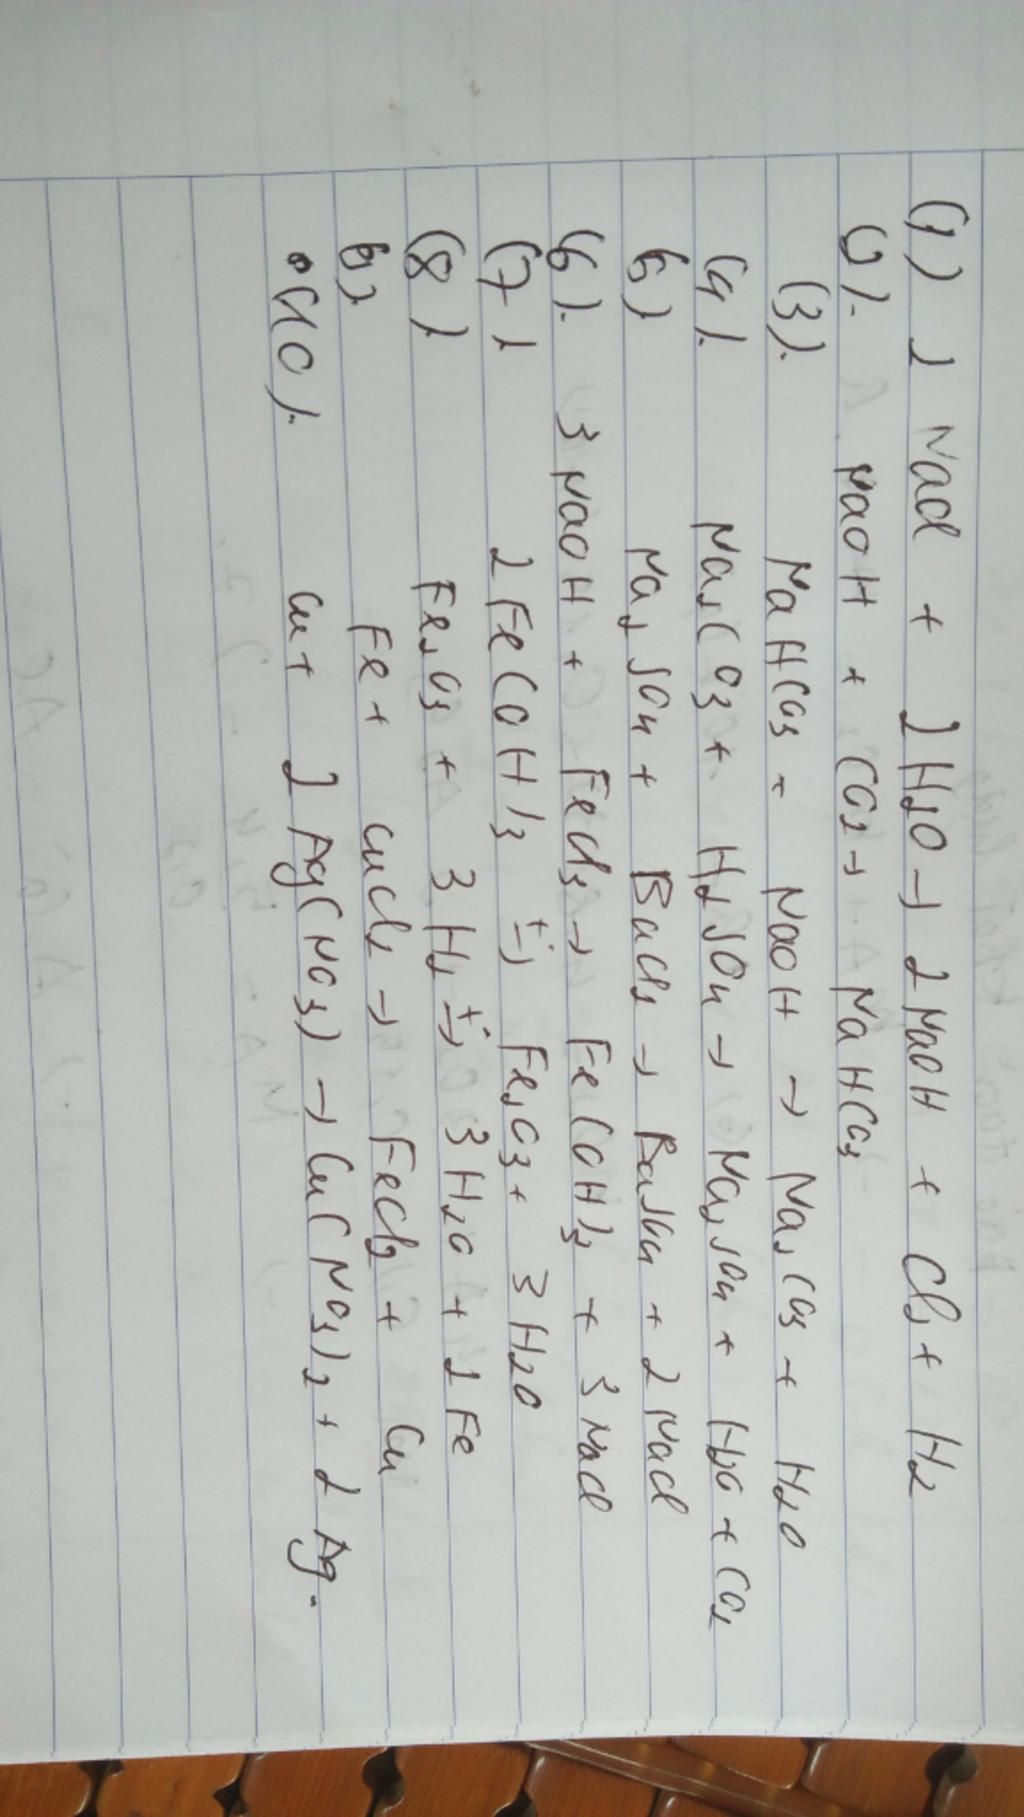 (1) 2 NaCl + 2H2O → 2NaOH + Cl2 + H2
(2). NaOH + CO2 → NaHCO3
(3). NaHCO3 + NaOH → Na2CO3 + H2O
(4). Na2CO3 + H2SO4 → Na2SO4 + H2O + CO2
5) Na2SO4 + BaCl2 → BaSO4 + 2 NaCl
(6). 3 NaOH + FeCl3 → Fe(OH)3 + 3 NaCl
(7) 2 Fe(OH)3 t° → Fe2O3 + 3 H2O
(8). Fe2O3 + 3 H2 t° → 3 H2O + 2 Fe
9). Fe + CuCl2 → FeCl2 + Cu
(10). Cu + 2 Ag(NO3) → Cu(NO3)2 + 2 Ag.